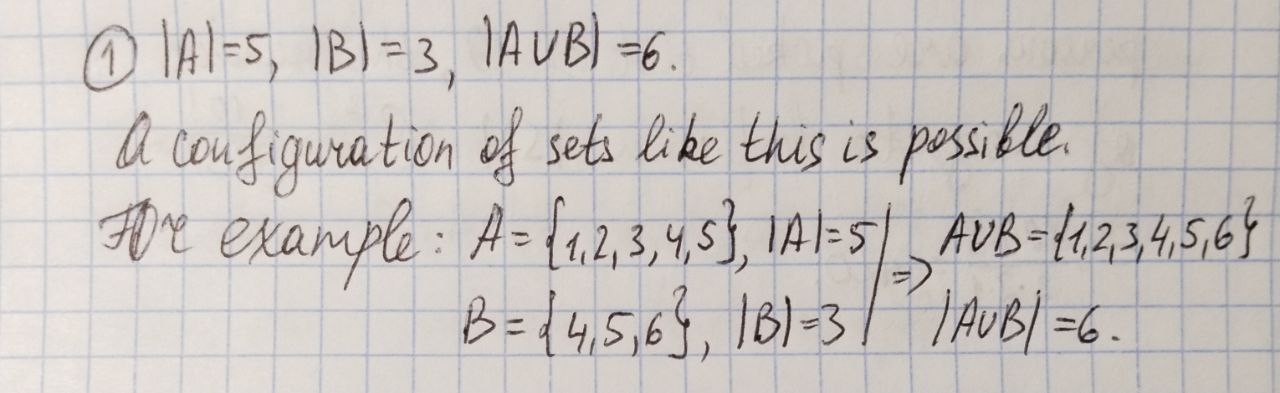 ① |A|=5, |B|=3, |A∪B|=6.
A configuration of sets like this is possible.
For example: A={1,2,3,4,5}, |A|=5 | => A∪B={1,2,3,4,5,6}
B={4,5,6}, |B|=3 | |A∪B|=6.